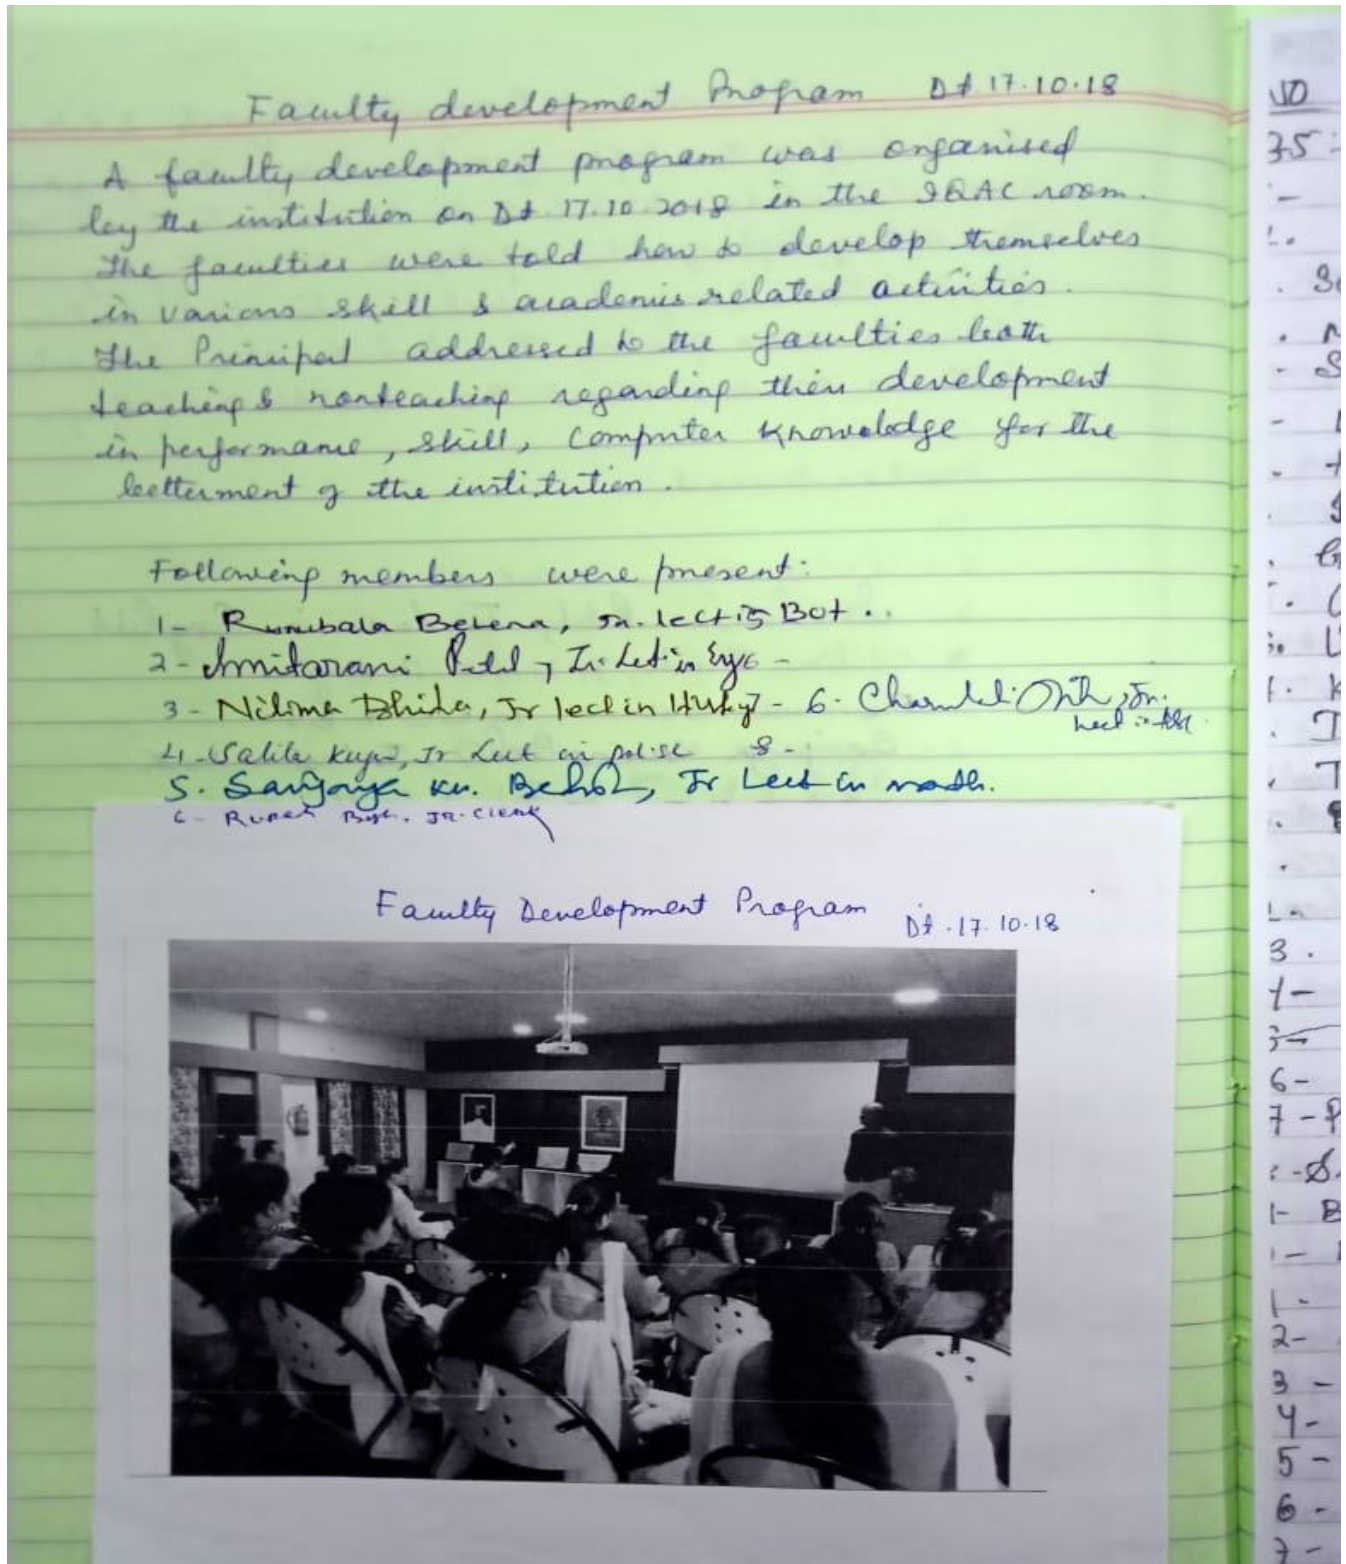 Faculty development Program Dt 17.10.18
A faculty development program was organised
by the institution on Dt 17.10.2018 in the IQAC room.
The faculties were told how to develop themselves
in various skill & academic related activities.
The Principal addressed to the faculties both
teaching & nonteaching regarding their development
in performance, skill, Computer Knowoledge for the
betterment of the institution.
Following members were present:
1- Runubala Behera, Jr. lect in Bot..
2- Smitarani Patel, Jr. Lect in
3- Nilima Bhida, Jr lect in - 6. Jr.
Lect in
4- Salila Jr Lect in pol.sc 8-
5. Ku. Jr Lect in math.
6- Jr. Clerk
Faculty Development Program Dt.17.10.18
VO
35
3.
6-
7-
1- B
2-
3-
4-
5-
6-
7-